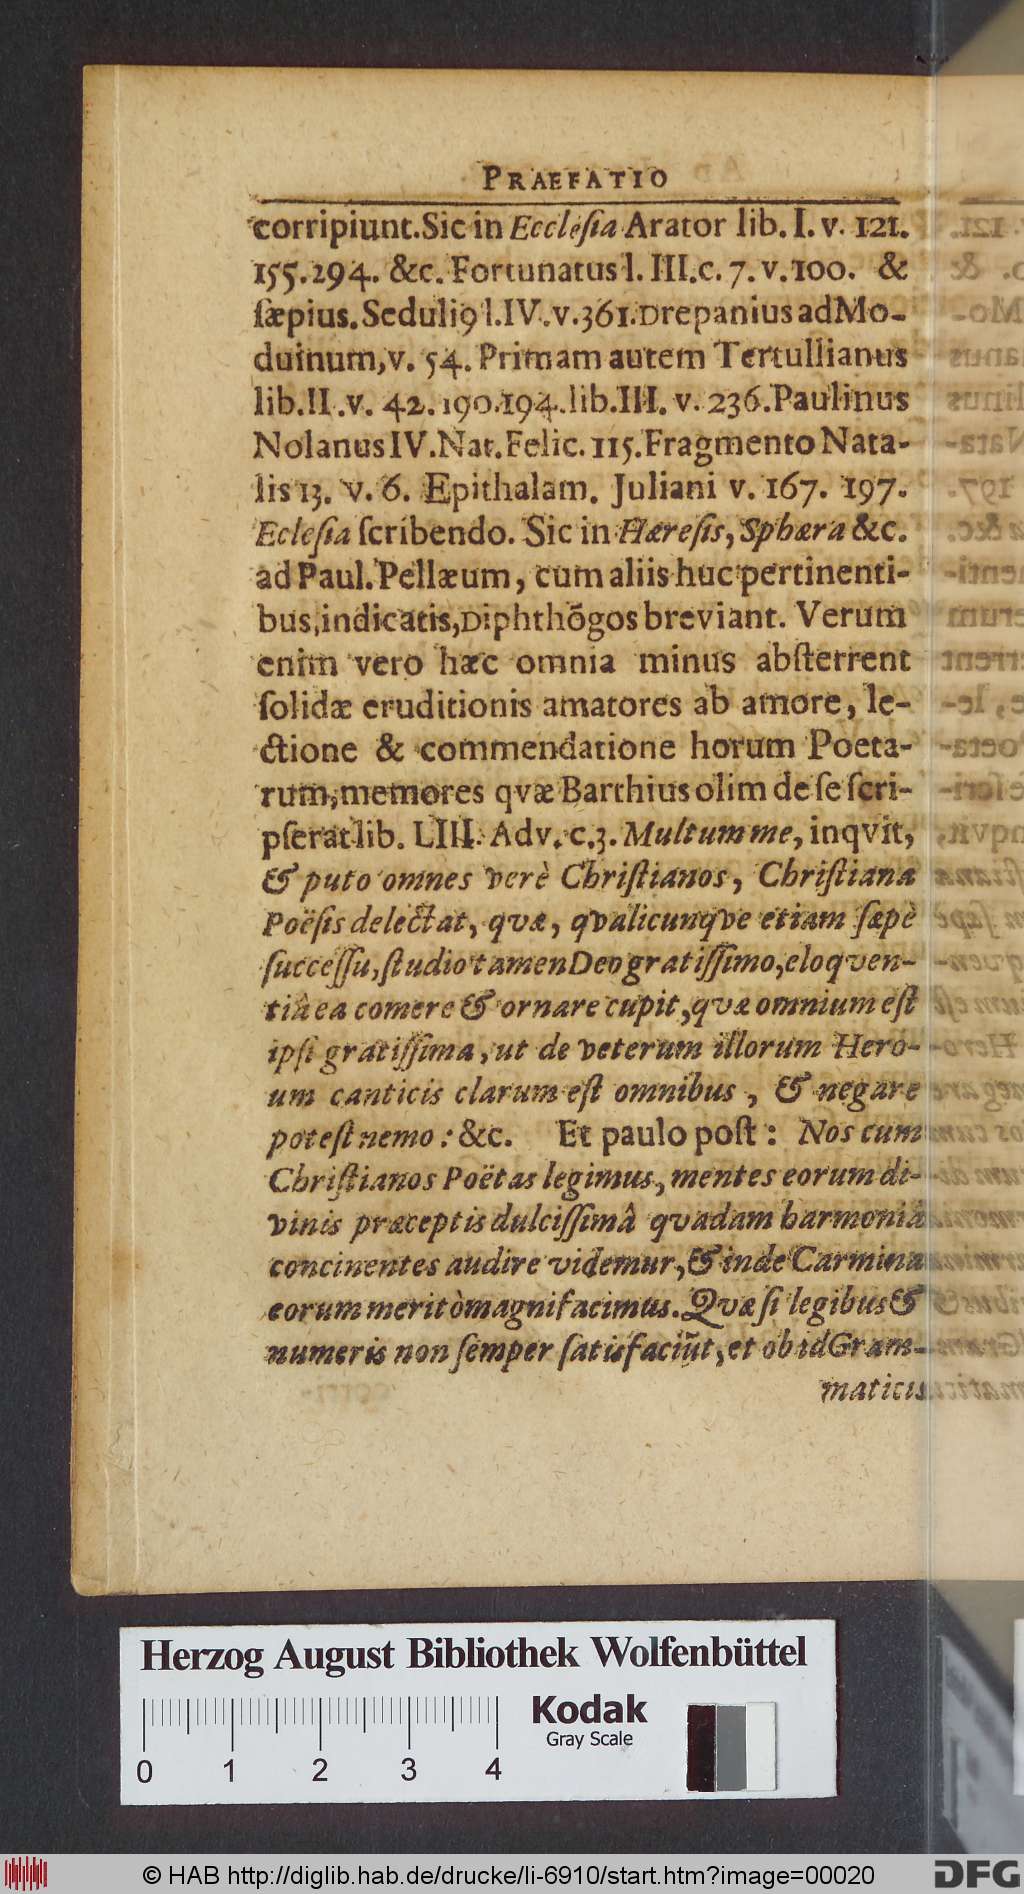 PRAEFATIO
corripiunt. Sic in Eccleſia Arator lib. I. v. 121.
155. 294. &c. Fortunatus l. III. c. 7. v. 100. &
ſæpius. Seduliꝰ l. IV. v. 361. Drepanius ad Mo-
duinum, v. 54. Primam autem Tertullianus
lib. II. v. 42. 190. 194. lib. III. v. 236. Paulinus
Nolanus IV. Nat. Felic. 115. Fragmento Nata-
lis 13. v. 6. Epithalam. Juliani v. 167. 197.
Ecleſia ſcribendo. Sic in Hæreſis, Sphæra &c.
ad Paul. Pellæum, cum aliis huc pertinenti-
bus, indicatis, Diphthõgos breviant. Verum
enim vero hæc omnia minus abſterrent
ſolidæ eruditionis amatores ab amore, le-
ctione & commendatione horum Poeta-
rum, memores qvæ Barthius olim de ſe ſcri-
pſerat lib. LIII. Adv. c. 3. Multum me, inqvit,
& puto omnes verè Chriſtianos, Chriſtiana
Poëſis delectat, qvæ, qvalicunqve etiam ſæpè
ſucceſſu, ſtudio tamen Deo gratiſſimo, eloqven-
tiâ ea comere & ornare cupit, qvæ omnium eſt
ipſi gratiſſima, ut de veterum illorum Hero-
um canticis clarum eſt omnibus, & negare
poteſt nemo: &c. Et paulo poſt: Nos cum
Chriſtianos Poëtas legimus, mentes eorum di-
vinis præceptis dulciſſimâ qvadam harmoniâ
concinentes audire videmur, & inde Carmina
eorum meritò magni facimus. Qvæ ſi legibus &
numeris non ſemper ſatisfaciũt, et ob id Gram-
maticis
Herzog August Bibliothek Wolfenbüttel
Kodak
Gray Scale
0 1 2 3 4
© HAB http://diglib.hab.de/drucke/li-6910/start.htm?image=00020
DFG